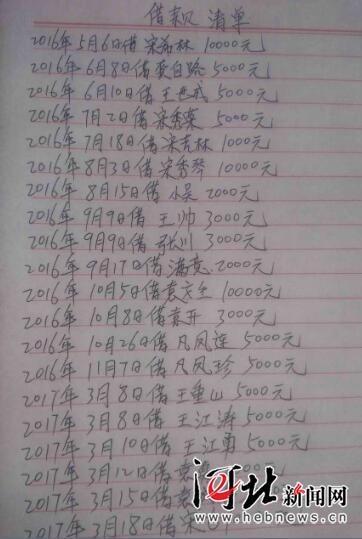 借款 清单
2016年5月6日借 宋希林 10000元
2016年6月8日借 白路 5000元
2016年6月10日借 王 成 5000元
2016年7月2日借 宋秀荣 5000元
2016年7月18日借 宋吉林 1000元
2016年8月3日借 宋秀琴 10000元
2016年8月15日借 小吴 2000元
2016年9月9日借 王帅 3000元
2016年9月9日借 张川 3000元
2016年9月17日借 满 2000元
2016年10月5日借 袁 10000元
2016年10月8日借 袁开 3000元
2016年10月26日借 凡凤莲 5000元
2016年11月7日借 凡凤珍 5000元
2017年3月8日借 王重山 5000元
2017年3月8日借 王江涛 5000元
2017年3月10日借 王江勇 5000元
2017年3月12日借 元
2017年3月15日借
2017年3月18日借 宋
河北新闻网
www.hebnews.cn